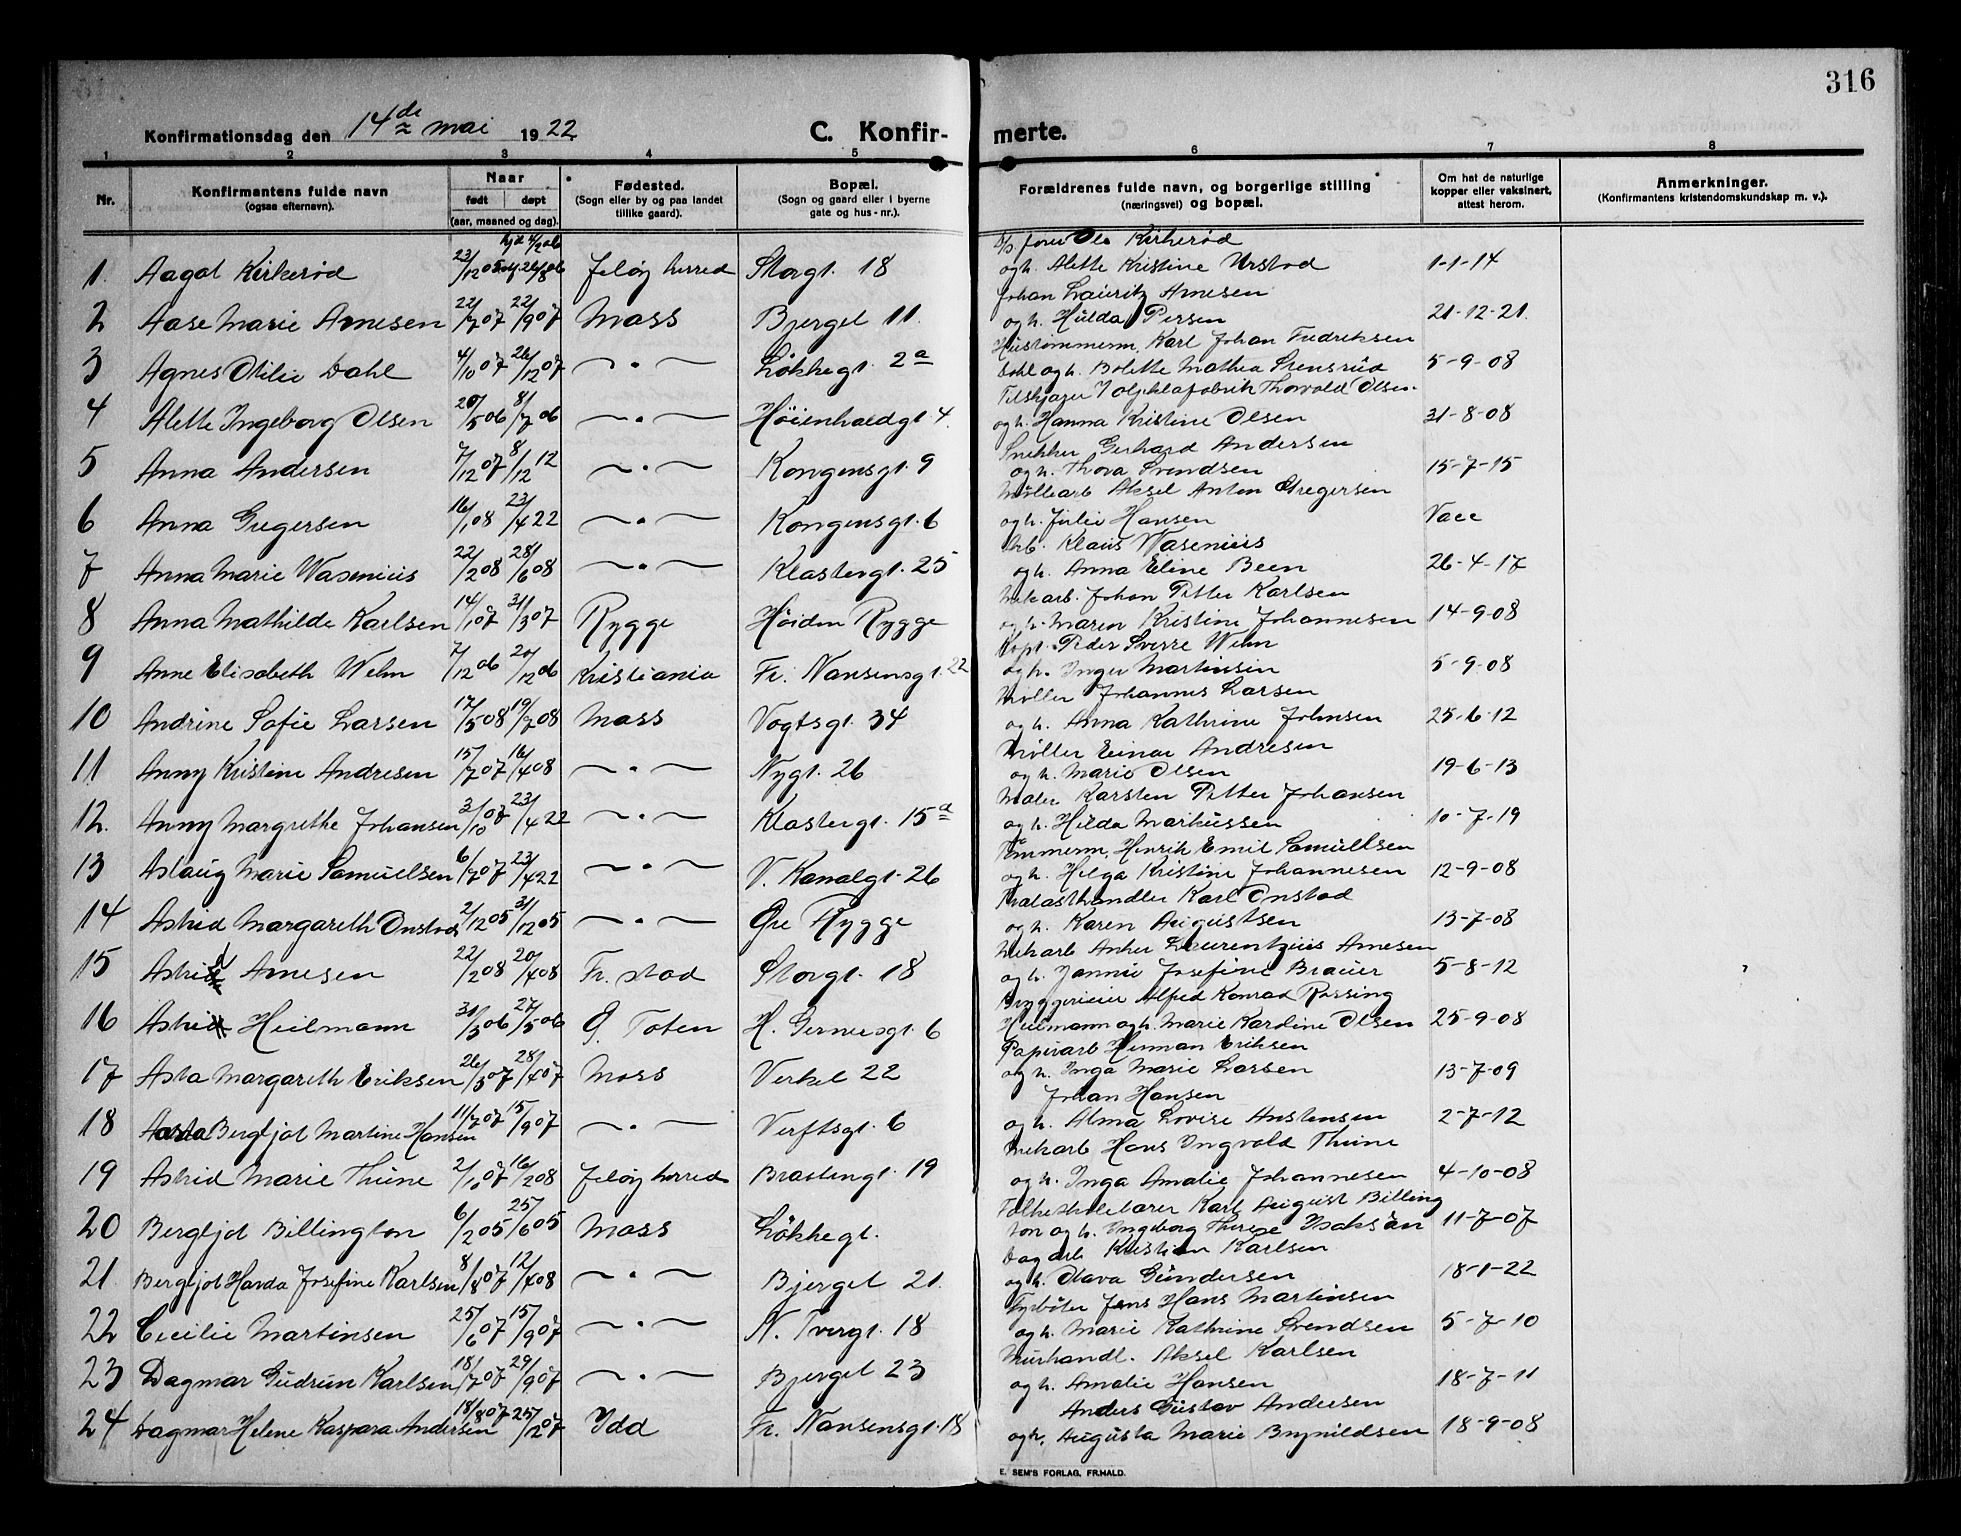 316
Konfirmationsdag den 14de mai 1922 C. Konfir- merte.
1 2 3 4 5 6 7 8
Nr. Konfirmantens fulde navn (ogsaa efternavn). Naar født døpt (aar, maaned og dag). Fødested. (Sogn eller by og paa landet tillike gaard). Bopæl. (Sogn og gaard eller i byerne gate og hus-nr.). Forældrenes fulde navn, og borgerlige stilling (næringsvei) og bopæl. Om hat de naturlige kopper eller vaksinert, attest herom. Anmerkninger. (Konfirmantens kristendomskundskap m. v.).
Ole Kirkerød
1. Aagot Kirkerød 23/12 05 Jeløy herred Storgt. 18 og h. Alette Kristine Urstad 1-1-14
Johan Lauritz Arnesen
2 Aase Marie Arnesen 22/7 07 22/9 07 Moss Bjerget 11. og h. Hulda Persen 21-12-21.
Hustømmerm. Karl Johan Fredriksen
3 Agnes Otilie Dahl 4/10 07 26/12 07 —〃— Løkkegt. 2a Dahl og h. Bolette Mathea Stensrud 5-9-08
Thorvald Olsen
4 Alette Ingeborg Olsen 20/5 06 8/7 06 —〃— Høienhaldgt. 4. og h. Hanna Kristine Olsen 31-8-08
Snekker Gerhard Andersen
5 Anna Andersen 7/12 07 8/12 12 —〃— Kongensgt. 9 og h. Thora Svendsen 15-7-15
Møllearb Aksel Anton Gregersen
6 Anna Gregersen 16/1 08 23/4 22 —〃— Kongensgt. 6 og h. Julie Hansen Vacc
Arb. Klaus Wasenius
7 Anna Marie Wasenius 22/2 08 28/6 08 —〃— Klostergt. 25 og h. Anna Eline Been 26-4-17
Mekarb. Johan Petter Karlsen
8 Anna Mathilde Karlsen 14/1 07 31/3 07 Rygge Høiden Rygge og h. Maren Kristine Johannesen 14-9-08
Kapt. Peder Sverre Wehn
9 Anne Elisabeth Wehn 7/12 06 20/12 06 Kristiania Fr. Nansensgt. 22 og h. Inger Martinsen 5-9-08
Møller Johannes Larsen
10 Andrine Sofie Larsen 17/5 08 19/7 08 Moss Vogtsgt. 34 og h. Anna Kathrine Johnsen 25-6-12
Møller Einar Andresen
11 Anny Kristine Andresen 15/7 07 16/4 08 —〃— Nygt. 26 og h. Marie Olsen 19-6-13
Maler Karsten Petter Johansen
12. Anny Margrethe Johansen 3/10 07 23/4 22 —〃— Klostergt. 15a og h. Hilda Markussen 10-7-19
Tømmerm. Henrik Emil Samuelsen
13 Aslaug Marie Samuelsen 6/7 07 23/4 22 —〃— V. Kanalgt. 26 og h. Helga Kristine Johannesen 12-9-08
Karl Onstad
14 Astrid Margareth Onstad 2/12 05 31/12 05 —〃— Øre Rygge og h. Karen Augustsen 13-7-08
Mekarb Anker Laurentzius Arnesen
15 Astrid Arnesen 22/2 08 20/4 08 Fr. stad Storgt. 18 og h. Jannie Josefine Brauer 5-8-12
Bryggerieier Alfred Konrad Rossing
16 Astrid Heilmann 31/3 06 27/5 06 Ø. Toten H. Gernersgt. 6 Heilmann og h. Marie Karoline Olsen 25-9-08
Papirarb Herman Eriksen
17 Asta Margareth Eriksen 26/3 07 28/4 07 Moss Verket 22 og h. Inga Marie Larsen 13-7-09
Johan Hansen
18 Aasta Bergljot Martine Hansen 11/7 07 15/9 07 —〃— Verftsgt. 6 og h. Alma Lovise Anstensen 2-7-12
Mekarb Hans Ingvald Thune
19 Astrid Marie Thune 2/10 07 16/2 08 Jeløy herred Brastengt. 19 og h. Inga Amalie Johannesen 4-10-08
Folkeskolelærer Karl August Billing
20 Bergljot Billington 6/2 05 25/6 05 Moss Løkkegt. ton og h. Ingeborg Therese Isaksen 11-7-07
Dagarb Kristian Karlsen
21. Bergljot Harda Josefine Karlsen 8/8 07 12/4 08 —〃— Bjerget 21. og h. Olava Gundersen 18-1-22
Fyrbøter Jens Hans Martinsen
22 Cecilie Martinsen 25/6 07 15/9 07 —〃— N. Tvergt. 18 og h. Marie Kathrine Svendsen 5-7-10
Murhandl. Aksel Karlsen
23 Dagmar Gudrun Karlsen 18/7 07 29/9 07 —〃— Bjerget 23 og h. Amalie Hansen 18-7-11
Anders Gustav Andersen
24 Dagmar Helene Kaspara Andersen 18/8 07 25/12 07 Idd Fr. Nansensgt. 18 og h. Augusta Marie Brynildsen 18-9-08
E. SEM'S FORLAG, FR.HALD.